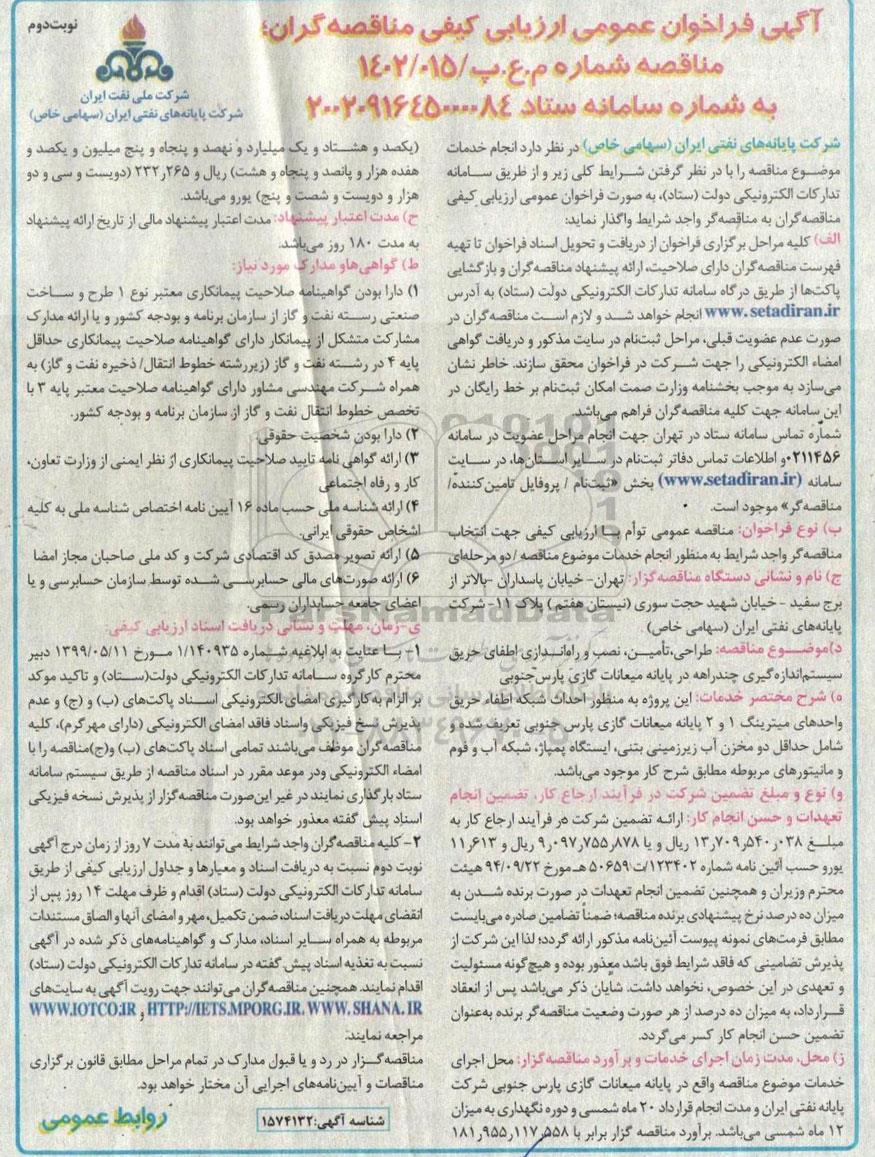 آگهی فراخوان عمومی ارزیابی کیفی مناقصه گران؛
مناقصه شماره م.ع.پ/۱۴۰۲/۰۱۵
به شماره سامانه ستاد ۲۰۰۲۰۹۱۶۴۵۰۰۰۰۸۴
نوبت‌دوم
شرکت ملی نفت ایران
شرکت پایانه‌های نفتی ایران (سهامی خاص)
شرکت پایانه‌های نفتی ایران (سهامی خاص) در نظر دارد انجام خدمات
موضوع مناقصه را با در نظر گرفتن شرایط کلی زیر و از طریق سامانه
تدارکات الکترونیکی دولت (ستاد)، به صورت فراخوان عمومی ارزیابی کیفی
مناقصه‌گران به مناقصه‌گر واجد شرایط واگذار نماید:
الف) کلیه مراحل برگزاری فراخوان از دریافت و تحویل اسناد فراخوان تا تهیه
فهرست مناقصه‌گران دارای صلاحیت، ارائه پیشنهاد مناقصه‌گران و بازگشایی
پاکت‌ها از طریق درگاه سامانه تدارکات الکترونیکی دولت (ستاد) به آدرس
www.setadiran.ir انجام خواهد شد و لازم است مناقصه‌گران در
صورت عدم عضویت قبلی، مراحل ثبت‌نام در سایت مذکور و دریافت گواهی
امضاء الکترونیکی را جهت شرکت در فراخوان محقق سازند. خاطر نشان
می‌سازد به موجب بخشنامه وزارت صمت امکان ثبت‌نام بر خط رایگان در
این سامانه جهت کلیه مناقصه‌گران فراهم می‌باشد.
شماره تماس سامانه ستاد در تهران جهت انجام مراحل عضویت در سامانه
۰۲۱۱۴۵۶ و اطلاعات تماس دفاتر ثبت‌نام در سایر استان‌ها، در سایت
سامانه (www.setadiran.ir) بخش «ثبت‌نام / پروفایل تامین‌کننده/
مناقصه‌گر» موجود است.
ب) نوع فراخوان: مناقصه عمومی توأم با ارزیابی کیفی جهت انتخاب
مناقصه‌گر واجد شرایط به منظور انجام خدمات موضوع مناقصه / دو مرحله‌ای
ج) نام و نشانی دستگاه مناقصه‌گزار: تهران- خیابان پاسداران -بالاتر از
برج سفید - خیابان شهید حجت سوری (نیستان هفتم) پلاک ۱۱- شرکت
پایانه‌های نفتی ایران (سهامی خاص)
د)موضوع مناقصه: طراحی،تأمین، نصب و راه‌اندازی اطفای حریق
سیستم‌اندازه‌گیری چندراهه در پایانه میعانات گازی پارس‌جنوبی
ه) شرح مختصر خدمات: این پروژه به منظور احداث شبکه اطفاء حریق
واحدهای میترینگ ۱ و ۲ پایانه میعانات گازی پارس جنوبی تعریف شده و
شامل حداقل دو مخزن آب زیرزمینی بتنی، ایستگاه پمپاژ، شبکه آب و فوم
و مانیتورهای مربوطه مطابق شرح کار موجود می‌باشد.
و) نوع و مبلغ تضمین شرکت در فرآیند ارجاع کار، تضمین انجام
تعهدات و حسن انجام کار: ارائه تضمین شرکت در فرآیند ارجاع کار به
مبلغ ۱۳٫۷۰۹٫۵۴۰٫۰۳۸ ریال و یا ۹٫۰۹۷٫۷۵۵٫۸۷۸ ریال و ۱۱٫۶۱۳
یورو حسب آئین نامه شماره ۱۲۳۴۰۲/ت ۵۰۶۵۹ هـ مورخ ۹۴/۰۹/۲۲ هیئت
محترم وزیران و همچنین تضمین انجام تعهدات در صورت برنده شدن به
میزان ده درصد نرخ پیشنهادی برنده مناقصه؛ ضمناً تضامین صادره می‌بایست
مطابق فرمت‌های نمونه پیوست آئین‌نامه مذکور ارائه گردد؛ لذا این شرکت از
پذیرش تضامینی که فاقد شرایط فوق باشد معذور بوده و هیچ‌گونه مسئولیت
و تعهدی در این خصوص، نخواهد داشت. شایان ذکر می‌باشد پس از انعقاد
قرارداد، به میزان ده درصد از هر صورت وضعیت مناقصه‌گر برنده به‌عنوان
تضمین حسن انجام کار کسر می‌گردد.
ز) محل، مدت زمان اجرای خدمات و برآورد مناقصه‌گزار: محل اجرای
خدمات موضوع مناقصه واقع در پایانه میعانات گازی پارس جنوبی شرکت
پایانه نفتی ایران و مدت انجام قرارداد ۲۰ ماه شمسی و دوره نگهداری به میزان
۱۲ ماه شمسی می‌باشد. برآورد مناقصه گزار برابر با ۱۸۱٫۹۵۵٫۱۱۷٫۵۵۸
(یکصد و هشتاد و یک میلیارد و نهصد و پنجاه و پنج میلیون و یکصد و
هفده هزار و پانصد و پنجاه و هشت) ریال و ۲۳۲٫۲۶۵ (دویست و سی و دو
هزار و دویست و شصت و پنج) یورو می‌باشد.
ح) مدت اعتبار پیشنهاد: مدت اعتبار پیشنهاد مالی از تاریخ ارائه پیشنهاد
به مدت ۱۸۰ روز می‌باشد.
ط) گواهی‌هاو مدارک مورد نیاز:
۱) دارا بودن گواهینامه صلاحیت پیمانکاری معتبر نوع ۱ طرح و ساخت
صنعتی رسته نفت و گاز از سازمان برنامه و بودجه کشور و یا ارائه مدارک
مشارکت متشکل از پیمانکار دارای گواهینامه صلاحیت پیمانکاری حداقل
پایه ۴ در رشته نفت و گاز (زیررشته خطوط انتقال/ ذخیره نفت و گاز) به
همراه شرکت مهندسی مشاور دارای گواهینامه صلاحیت معتبر پایه ۳ با
تخصص خطوط انتقال نفت و گاز از سازمان برنامه و بودجه کشور.
۲) دارا بودن شخصیت حقوقی.
۳) ارائه گواهی نامه تایید صلاحیت پیمانکاری از نظر ایمنی از وزارت تعاون،
کار و رفاه اجتماعی
۴) ارائه شناسه ملی حسب ماده ۱۶ آیین نامه اختصاص شناسه ملی به کلیه
اشخاص حقوقی ایرانی.
۵) ارائه تصویر مصدق کد اقتصادی شرکت و کد ملی صاحبان مجاز امضا
۶) ارائه صورت‌های مالی حسابرسی شده توسط سازمان حسابرسی و یا
اعضای جامعه حسابداران رسمی.
ی-زمان، مهلت و نشانی دریافت اسناد ارزیابی کیفی.
۱- با عنایت به ابلاغیه شماره ۱/۱۴۰۹۳۵ مورخ ۱۳۹۹/۰۵/۱۱ دبیر
محترم کارگروه سامانه تدارکات الکترونیکی دولت(ستاد) و تاکید موکد
بر الزام به کارگیری امضای الکترونیکی اسناد پاکت‌های (ب) و (ج) و عدم
پذیرش نسخ فیزیکی واسناد فاقد امضای الکترونیکی (دارای مهرگرم)، کلیه
مناقصه‌گران موظف می‌باشند تمامی اسناد پاکت‌های (ب) و(ج)مناقصه را با
امضاء الکترونیکی ودر موعد مقرر در اسناد مناقصه از طریق سیستم سامانه
ستاد بارگذاری نمایند در غیر این‌صورت مناقصه‌گزار از پذیرش نسخه فیزیکی
اسناد پیش گفته معذور خواهد بود.
۲- کلیه مناقصه‌گران واجد شرایط می‌توانند به مدت ۷ روز از زمان درج آگهی
نوبت دوم نسبت به دریافت اسناد و معیارها و جداول ارزیابی کیفی از طریق
سامانه تدارکات الکترونیکی دولت (ستاد) اقدام و ظرف مهلت ۱۴ روز پس از
انقضای مهلت دریافت اسناد، ضمن تکمیل، مهر و امضای آنها و الصاق مستندات
مربوطه به همراه سایر اسناد، مدارک و گواهینامه‌های ذکر شده در آگهی
نسبت به تغذیه اسناد پیش گفته در سامانه تدارکات الکترونیکی دولت (ستاد)
اقدام نمایند. همچنین مناقصه‌گران می‌توانند جهت رویت آگهی به سایت‌های
WWW.IOTCO.IR و HTTP://IETS.MPORG.IR، WWW.SHANA.IR
مراجعه نمایند.
مناقصه‌گزار در رد و یا قبول مدارک در تمام مراحل مطابق قانون برگزاری
مناقصات و آیین‌نامه‌های اجرایی آن مختار خواهد بود.
شناسه آگهی:۱۵۷۴۱۳۲
روابط عمومی